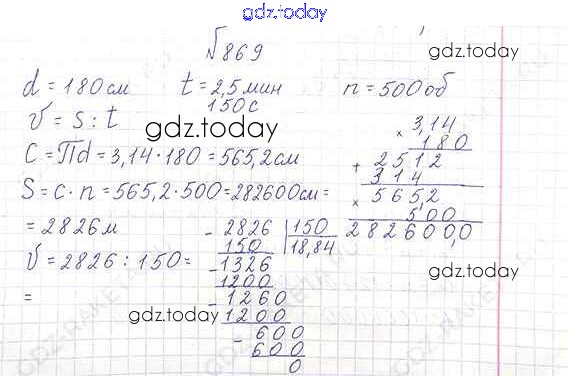 gdz.today
№869
gdz.today
d = 180 см t = 2,5 мин n = 500 об
150 с
V = s : t
gdz.today
C = Πd = 3,14 · 180 = 565,2 см
S = c · n = 565,2 · 500 = 282600 см =
= 2826 м
V = 2826 : 150 =
=
× 3,14
180
+ 2512
314
× 565,2
500
282600,0
- 2826 | 150
150 | 18,84
- 1326
1200
- 1260
1200
- 600
600
0
gdz.today
gdz.today